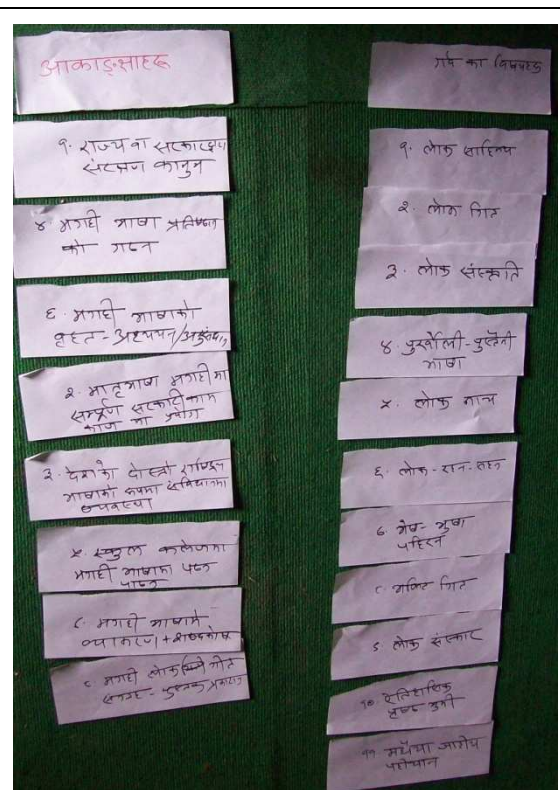 आकाङ्साहरू
१. राज्य वा सरकारद्वारा
संरक्षण कानुन
४ मगही भाषा प्रतिष्ठान
को गठन
६. मगही भाषाको
बृहत - अध्ययन/अनुसंधान
२. मातृभाषा मगहीमा
सम्पूर्ण सरकारी काम
काज मा प्रयोग
३. देशको दोस्रो राष्ट्रिय
भाषाको रूपमा संविधानमा
व्यवस्था
५ स्कुल कलेजमा
मगही भाषामा पठन
पाठन
८. मगही भाषाको
व्याकरण + शब्दकोष
मगही लोक गीत
पुस्तक प्रकाशन
गर्व का विषयहरू
१. लोक साहित्य
२. लोक गित
३. लोक संस्कृति
४ पुर्खौली - पुस्तैनी
भाषा
५. लोक नाच
६. लोक - रहन - सहन
७. भेष - भुषा
पहिरन
८. भक्ति गित
९ लोक संस्कार
१० ऐतिहासिक
११
पहिचान